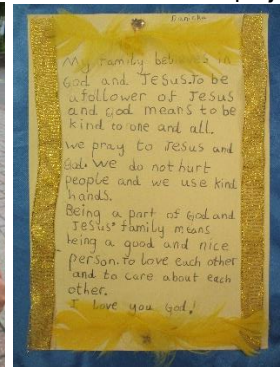 My family believes in
God and Jesus. To be
a follower of Jesus
and God means to be
kind to one and all.
We pray to Jesus and
God. We do not hurt
people and we use kind
hands.
Being a part of God and
Jesus' family means
being a good and nice
person. To love each other
and to care about each
other.
I love you God!